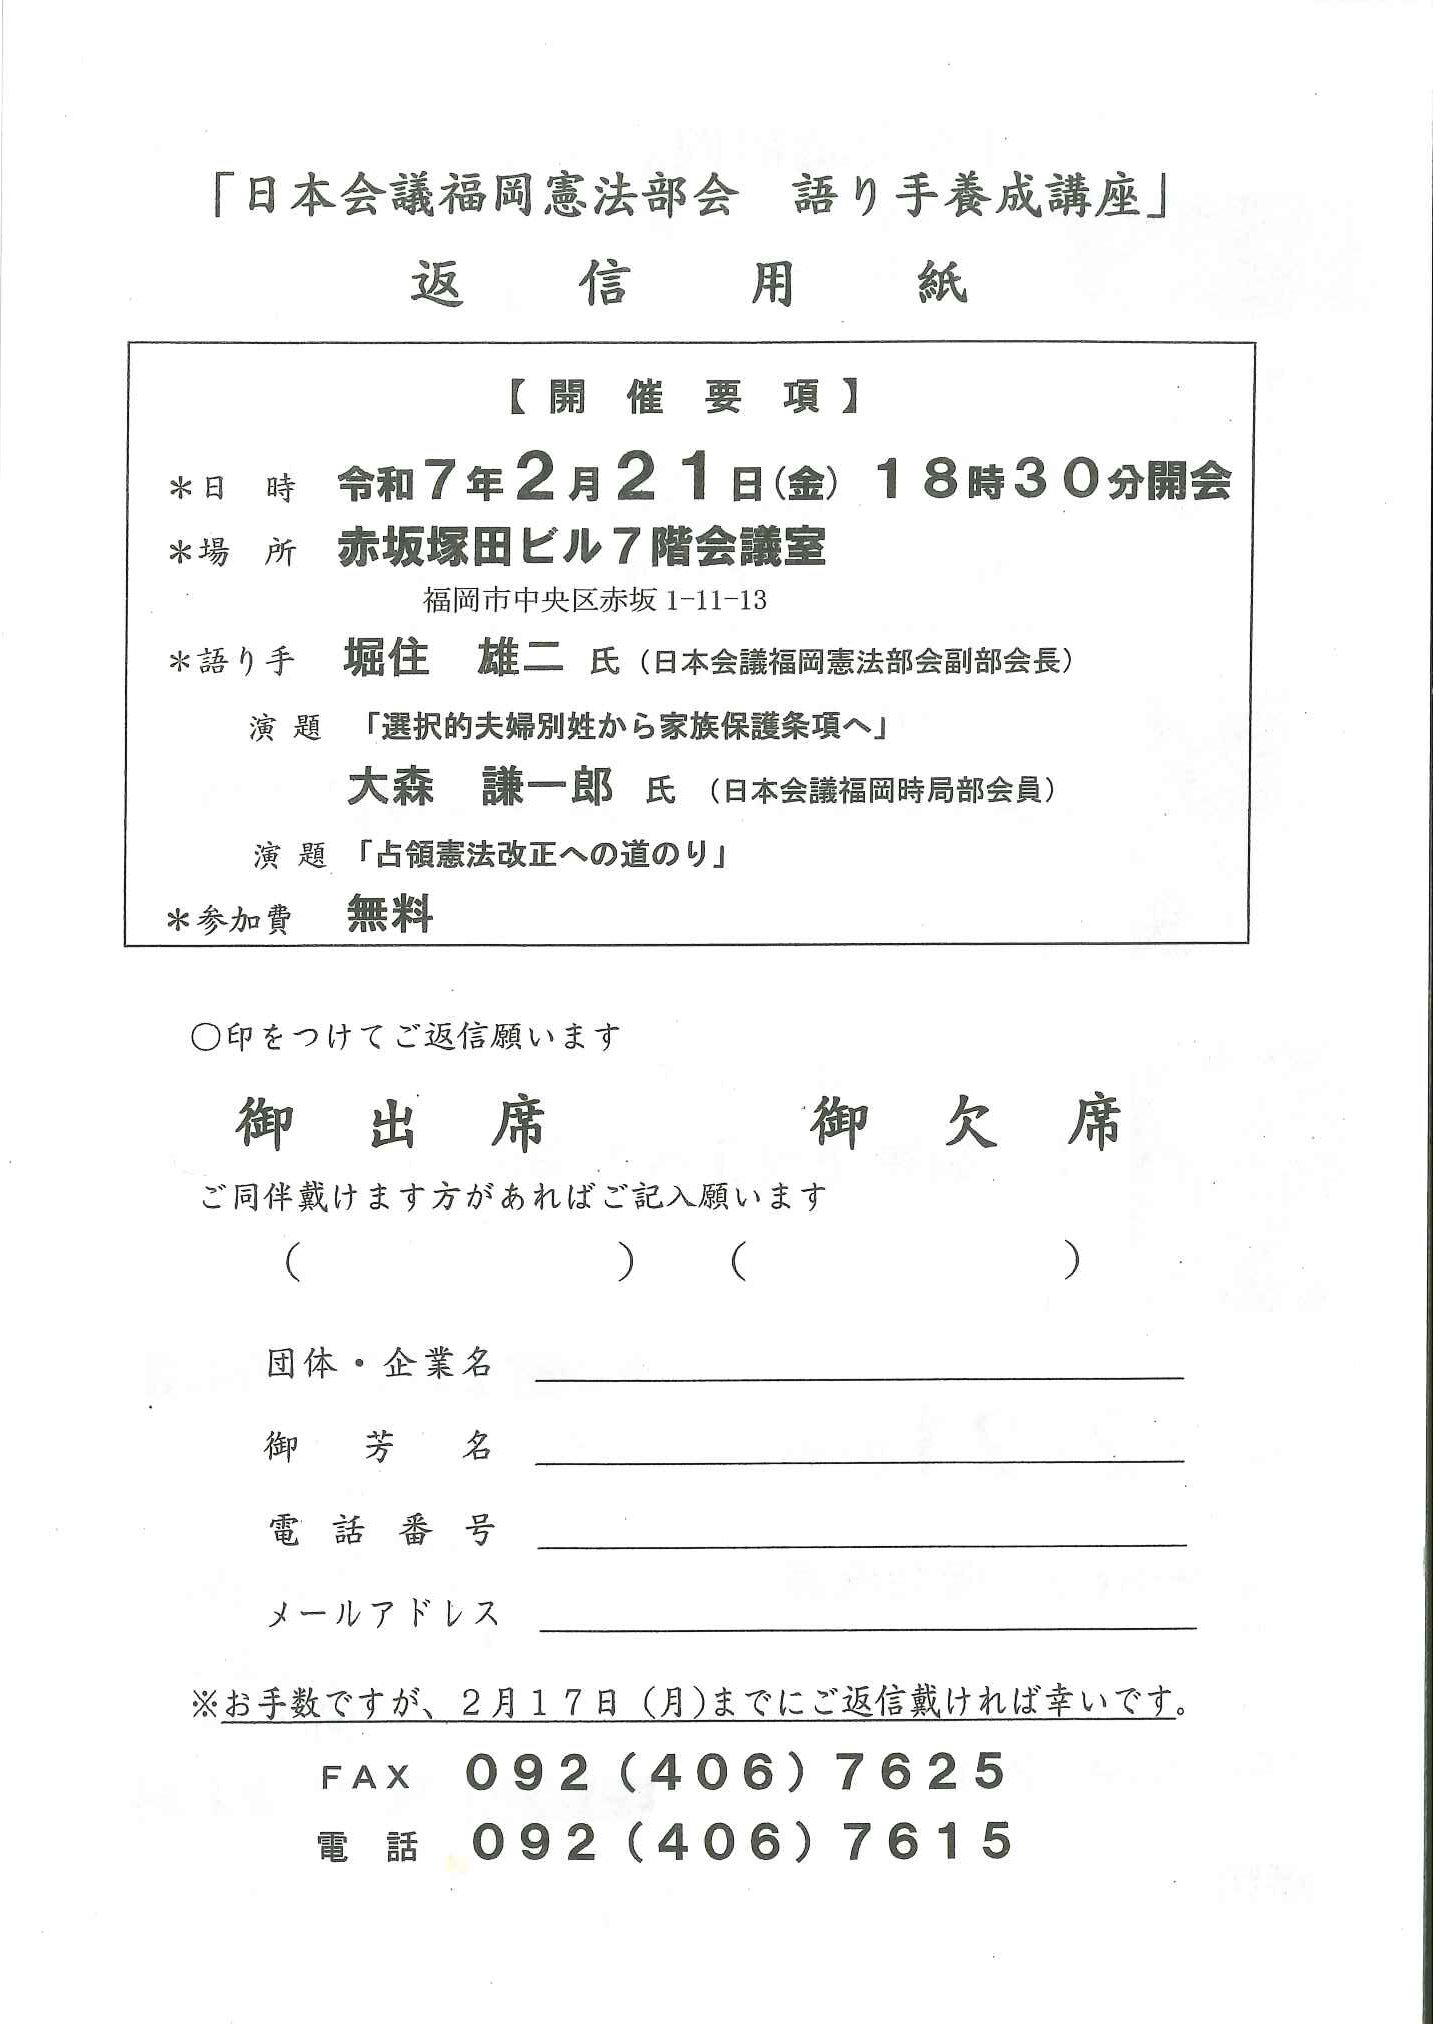 「日本会議福岡憲法部会　語り手養成講座」
返　信　用　紙
【 開　催　要　項 】
＊日　時　令和７年２月２１日（金）１８時３０分開会
＊場　所　赤坂塚田ビル７階会議室
福岡市中央区赤坂 1-11-13
＊語り手　堀住　雄二 氏（日本会議福岡憲法部会副部会長）
演 題　「選択的夫婦別姓から家族保護条項へ」
大森　謙一郎 氏　（日本会議福岡時局部会員）
演 題　「占領憲法改正への道のり」
＊参加費　無料
〇印をつけてご返信願います
御　出　席　　　　　御　欠　席
ご同伴戴けます方があればご記入願います
（　　　　　　　　　）　（　　　　　　　　　）
団体・企業名
御　芳　名
電 話 番 号
メールアドレス
※お手数ですが、２月１７日（月）までにご返信戴ければ幸いです。
ＦＡＸ　０９２（４０６）７６２５
電　話　０９２（４０６）７６１５